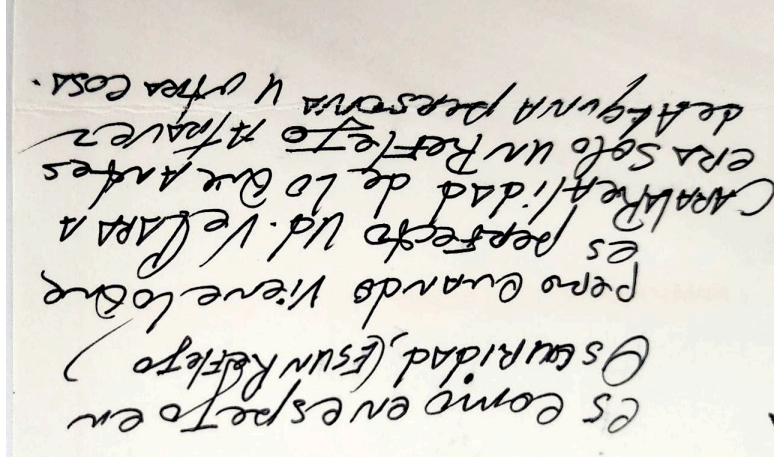 es como en espeJo en
OscuRidad, (Es un ReFleJo)
pero cuando viene lo que
es perfecto Ud. Ve CARA A
CARA LA ReAlidAd de Lo Que Antes
erA Solo un ReFleJo A trAvez
de AlgunA personA u otrA CosA.